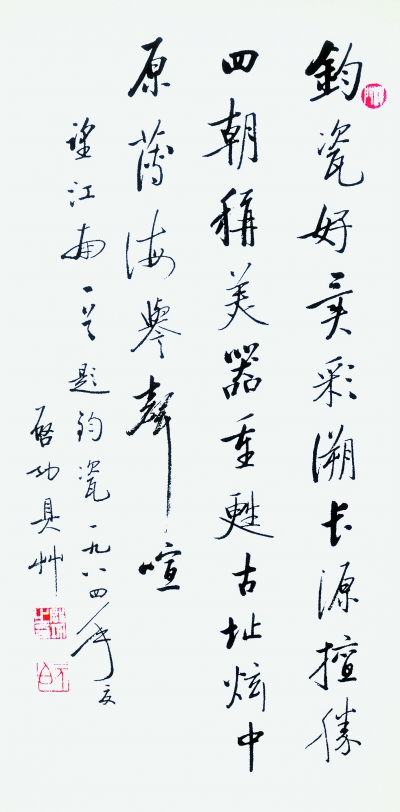 鈞瓷好異彩溯长源擅勝
四朝稱美器重甦古址炫中
原薄海譽聲喧
望江南一首題鈞瓷一九八四年夏
啟功具艸